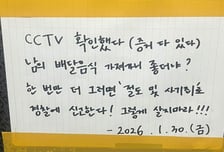 CCTV 확인했다 (증거 다 있다)
남의 배달음식 가져가니 좋더냐?
한 번만 더 그러면 '절도 및 사기죄'로
경찰에 신고한다! 그렇게 살지마라!!!
- 2026. 1. 30. (금)